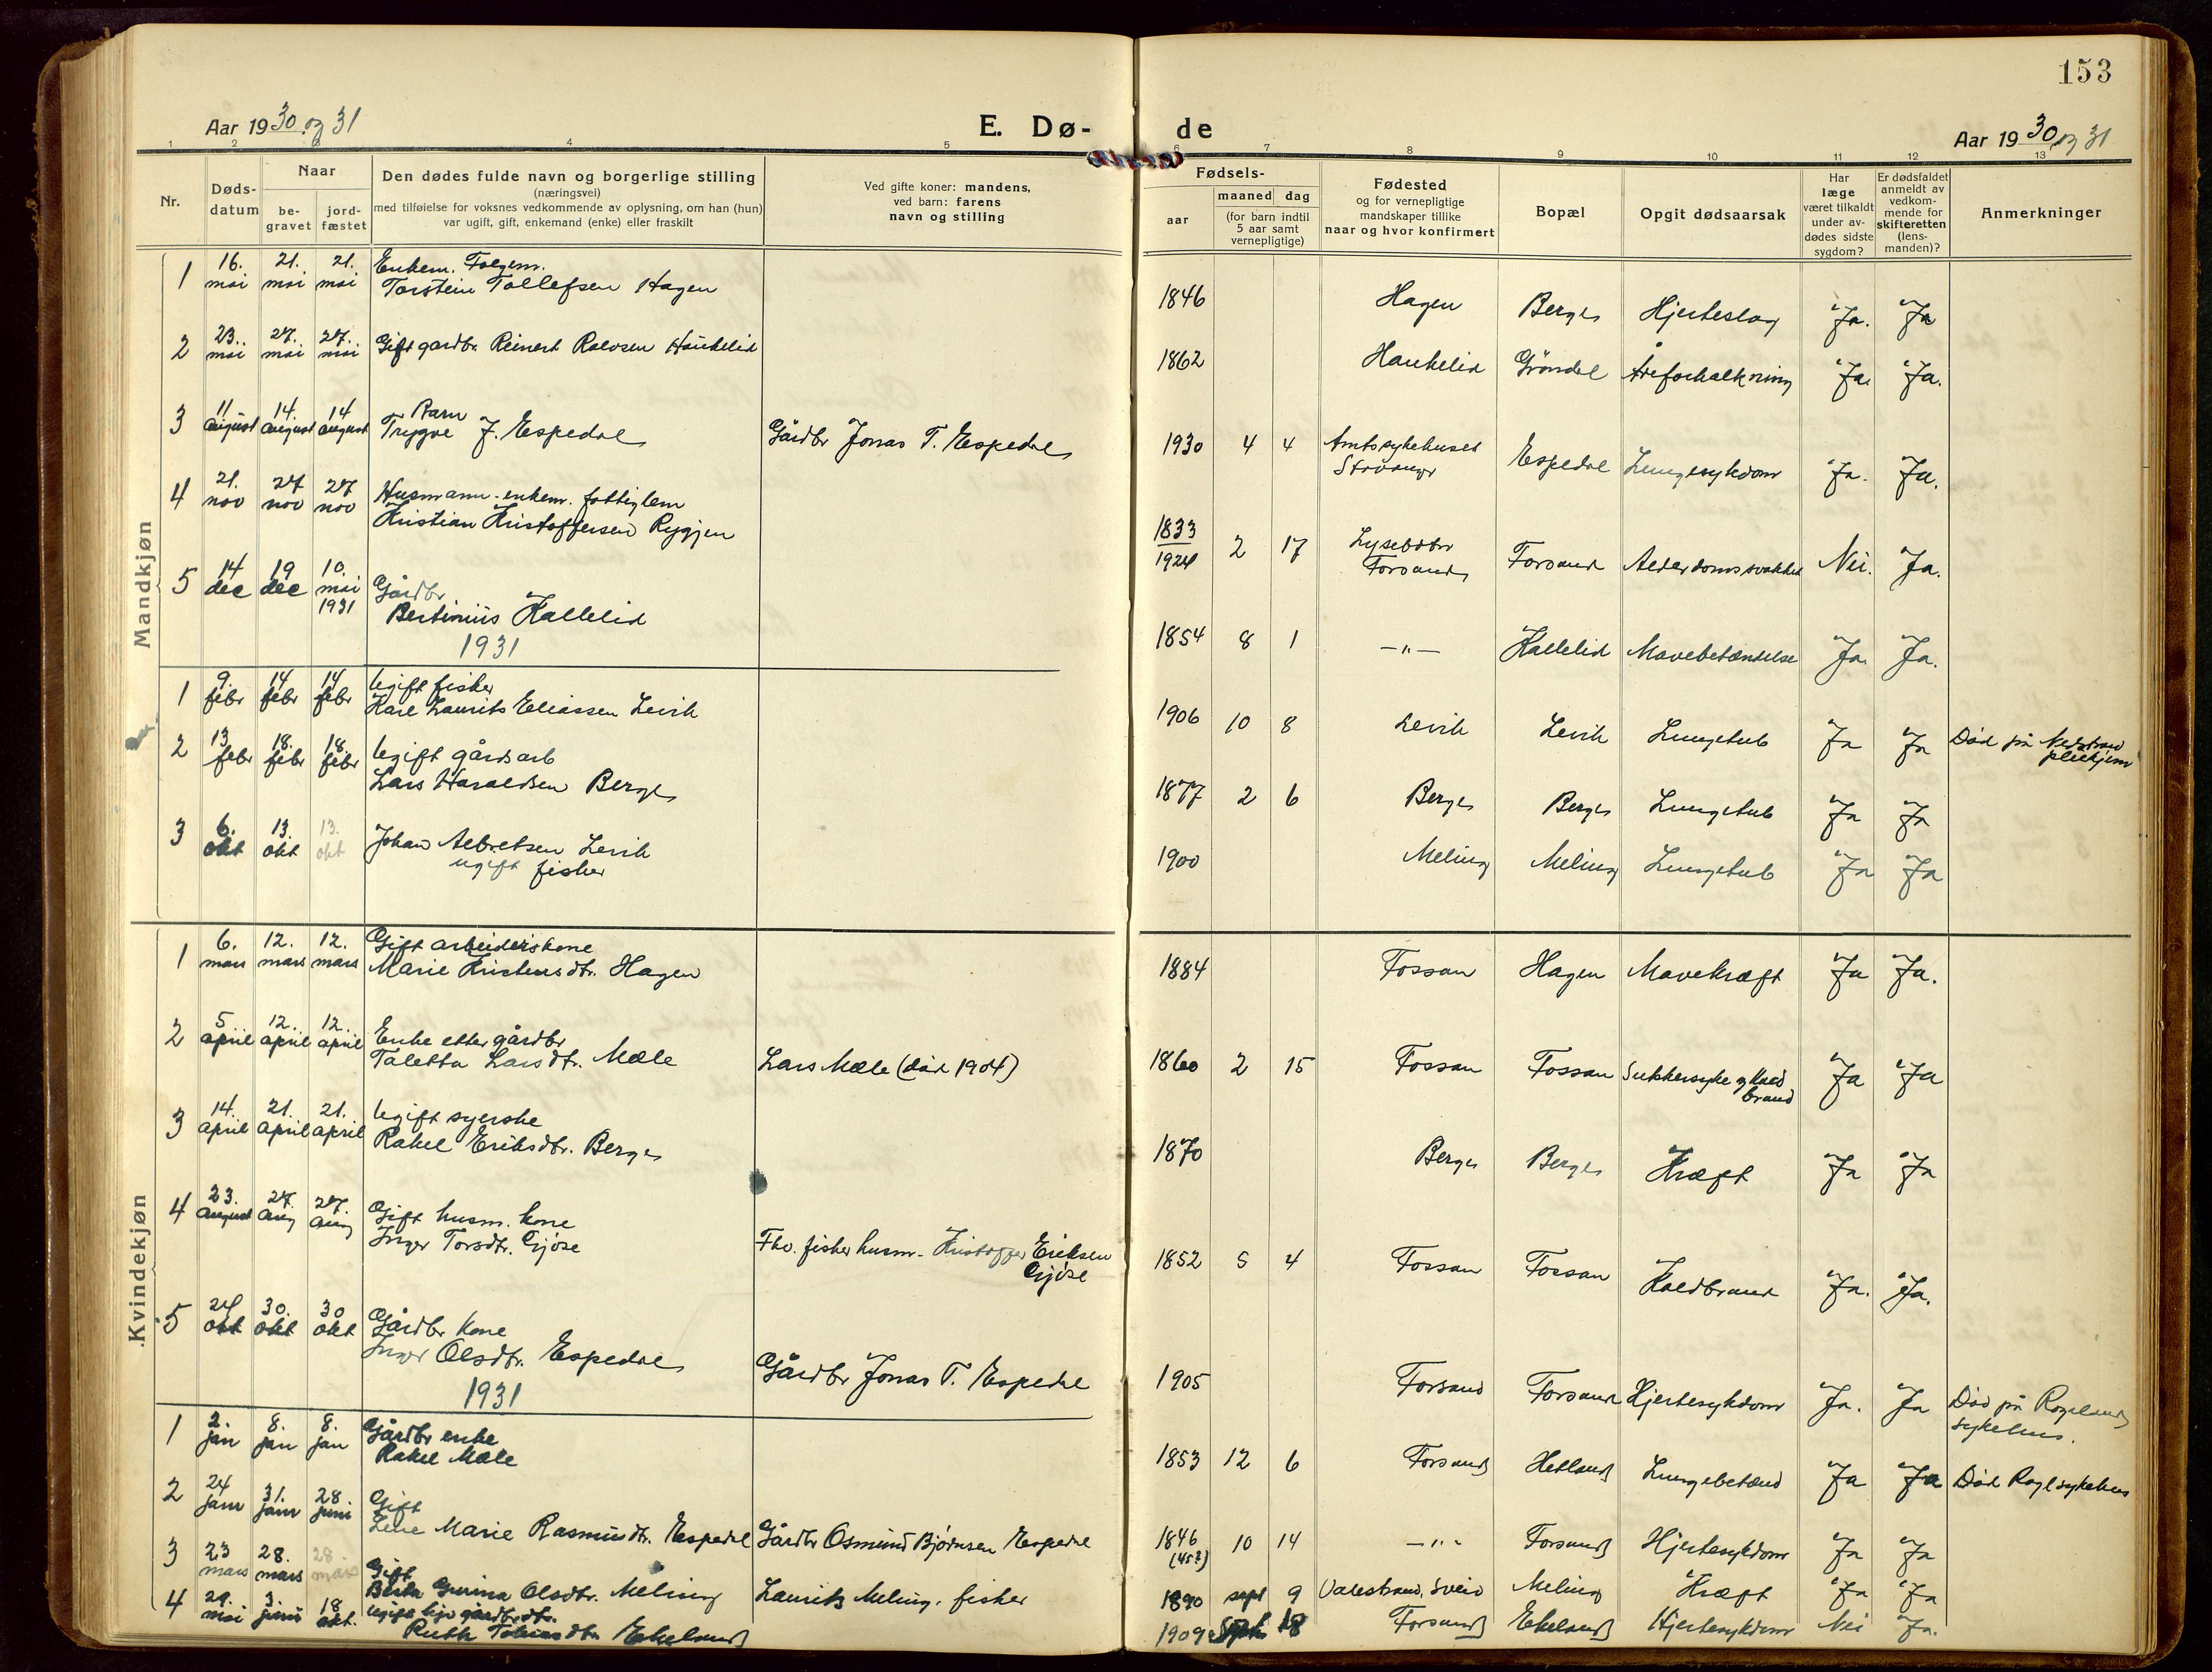 153
Aar 1930 og 31
E. Dø- de
Aar 1930 og 31
1 2 3 4 5 6 7 8 9 10 11 12 13
Nr.
Døds-
datum
Naar
be-
gravet
jord-
fæstet
Den dødes fulde navn og borgerlige stilling
(næringsvei)
med tilføielse for voksnes vedkommende av oplysning, om han (hun)
var ugift, gift, enkemand (enke) eller fraskilt
Ved gifte koner: mandens,
ved barn: farens
navn og stilling
Fødsels-
aar
maaned dag
(for barn indtil
5 aar samt
vernepligtige)
Fødested
og for vernepligtige
mandskaper tillike
naar og hvor konfirmert
Bopæl
Opgit dødsaarsak
Har
læge
været tilkaldt
under av-
dødes sidste
sygdom?
Er dødsfaldet
anmeldt av
vedkom-
mende for
skifteretten
(lens-
manden)?
Anmerkninger
Mandkjøn
1 16. mai 21. mai 21. mai Enkem. Folgem.
Torstein Tollefsen Hagen 1846 Hagen Berge Hjerteslag Ja. Ja
2 23. mai 27. mai 27. mai Gift gardbr. Reinert Ralvsen Haukelid 1862 Haukelid Gröndal Åreforkalkning Ja. Ja.
3 11 august 14. august 14 august Barn
Trygve J. Espedal Gårdbr Jonas T. Espedal 1930 4 4 Amtssykehuset
Stavanger Espedal Lungesykdom Ja. Ja.
4 21. nov 27 nov 27 nov Husmann-enkem. fattiglem
Kristian Kristoffersen Rygjen 1833
1924 2 17 Lysebotn
Forsand Forsand Alderdomssvakhet Nei. Ja.
5 14 dec 19 dec 10. mai 1931 Gårdbr
Bertinius Kallelid 1854 8 1 —"— Kallelid Mavebetændelse Ja. Ja.
1931
1 9. febr 14 febr 14 febr Ugift fisker
Karl Laurits Eliassen Levik 1906 10 8 Levik Levik Lungetub Ja Ja Död på Nedstrand
pleiehjem
2 13 febr 18. febr 18. febr Ugift gårdsarb
Lars Haraldsen Berge 1877 2 6 Berge Berge Lungetub Ja Ja
3 6. okt 13. okt 13. okt Johan Albretsen Levik
ugift fisker 1900 Meling Meling Lungetub Ja Ja
Kvindekjøn
1 6. mars 12. mars 12. mars Gift arbeiderskone
Marie Kristensdtr. Hagen 1884 Fossan Hagen Mavekræft Ja Ja.
2 5 april 12. april 12. april Enke etter gårdbr
Taletta Larsdtr. Mæle Lars Mæle (död 1904) 1860 2 15 Fossan Fossan Sukkersyke og kold
brand Ja Ja
3 14. april 21. april 21. april Ugift syerske
Rakel Eriksdtr. Berge 1870 Berge Berge Kræft Ja Ja
4 23. august 27. aug 27. aug Gift husm. kone
Inger Torsdtr. Gjöse Fhv. fisker husm. Kristoffer Eriksen
Gjöse 1852 5 4 Fossan Fossan Koldbrand Ja. Ja.
5 24 okt 30. okt 30 okt Gårdbr kone
Inger Olsdtr. Espedal Gårdbr Jonas T. Espedal 1905 Forsand Forsand Hjertesykdom Ja. Ja Död på Rogalands
sykehus.
1931
1 2. jan 8. jan 8. jan Gårdbr enke
Rakel Mæle 1853 12 6 Forsand Hetland Lungebetænd Ja Ja Död Rogl sykehus
2 24 janr 31. janr 28 juni Gift
Lene Marie Rasmusdtr. Espedal Gårdbr Osmund Bjørnsen Espedal 1846
(45?) 10 14 —"— Forsand Hjertesykdom Ja Ja
3 23 mars 28. mars 28 mars Gift
Berta Gurina Olsdtr. Meling Laurits Meling, fisker 1890 sept 9 Valestrand, Sveio Meling Kræft Ja Ja
4 29. mai 3. juni 18 okt. Ugift gårdbr.dtr.
Ruth Tobiasdtr Eikeland 1909 Sept. 18 Forsand Eikeland Hjertesykdom Nei Ja.